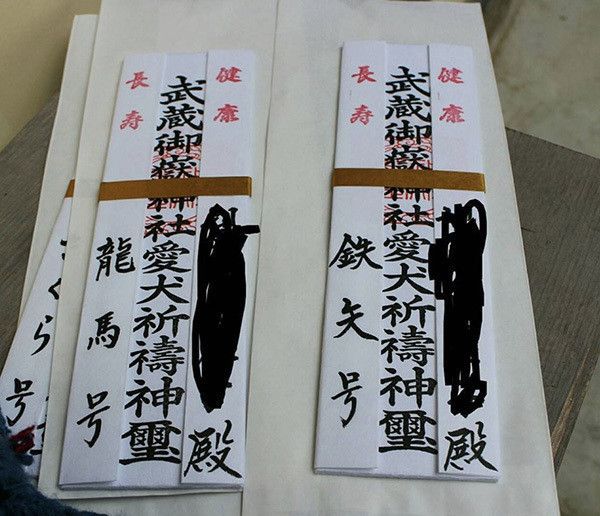 健康
武蔵御嶽神社愛犬祈禱神璽
長寿
殿
鉄矢号
健康
武蔵御嶽神社愛犬祈禱神璽
長寿
殿
龍馬号
さくら号